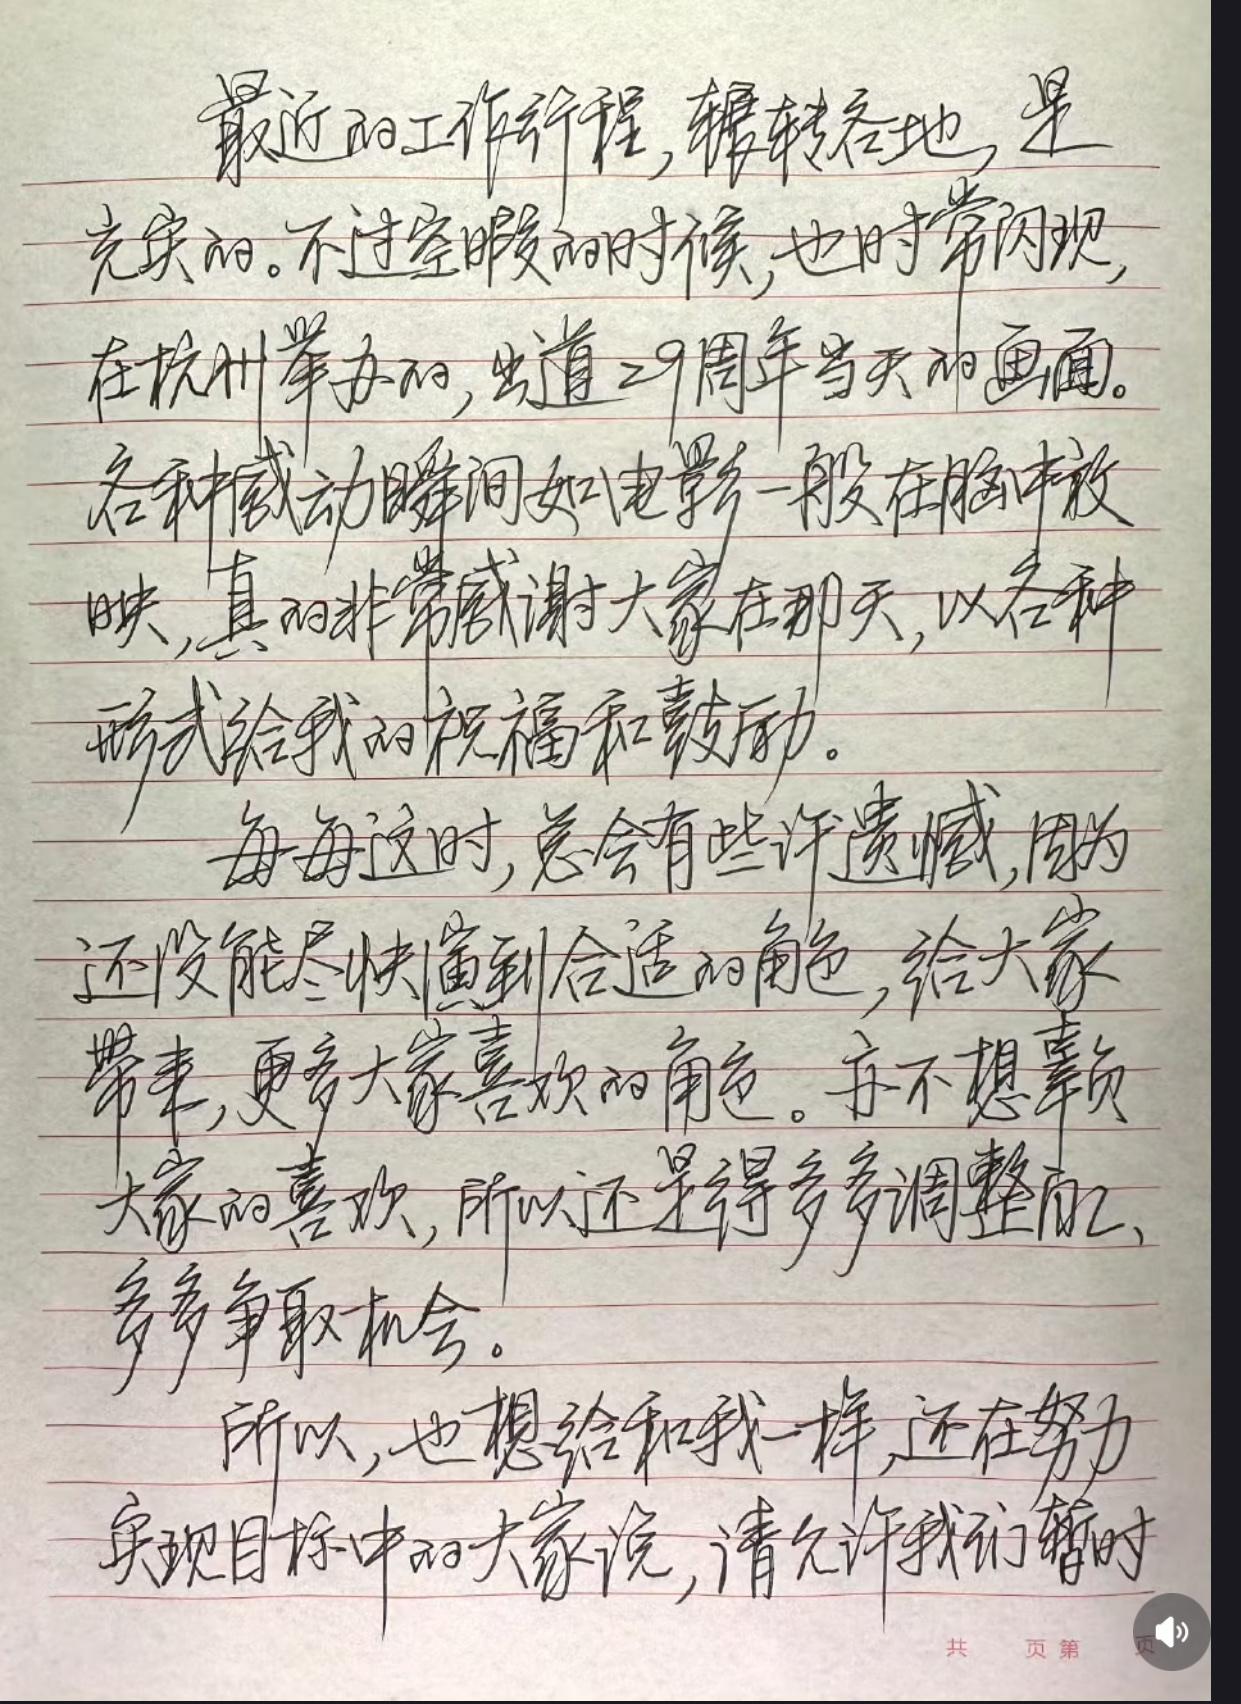 最近的工作行程,辗转各地,是
充实的。不过空暇的时候,也时常闪现,
在杭州举办的,出道29周年当天的画面。
各种感动瞬间如电影一般在脑中放
映,真的非常感谢大家在那天,以各种
形式给我的祝福和鼓励。
每每这时,总会有些许遗憾,因为
还没能尽快演到合适的角色,给大家
带来,更多大家喜欢的角色。亦不想辜负
大家的喜欢,所以还是得多多调整自己、
多多争取机会。
所以,也想给和我一样,还在努力
实现目标中的大家说,请允许我们暂时
共 页 第 页